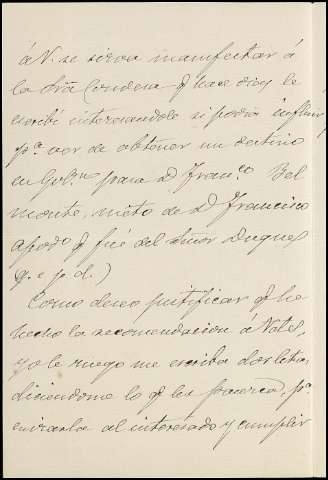 á V. se sirva manifestar á
la Sra Condesa q hace dias le
escribí interesandole si podia influir
pa. ver de obtener un destino
en Gobno para D. Franco Bel
monte, nieto de D. Francisco
apodo q fué del Señor Duque
q. e. p. d.)
Como deseo justificar q he
hecho la recomendacion á Vdes,
yo le ruego me escriba dos letras
diciendome lo q les parezca, pa.
enviarla al interesado y cumplir